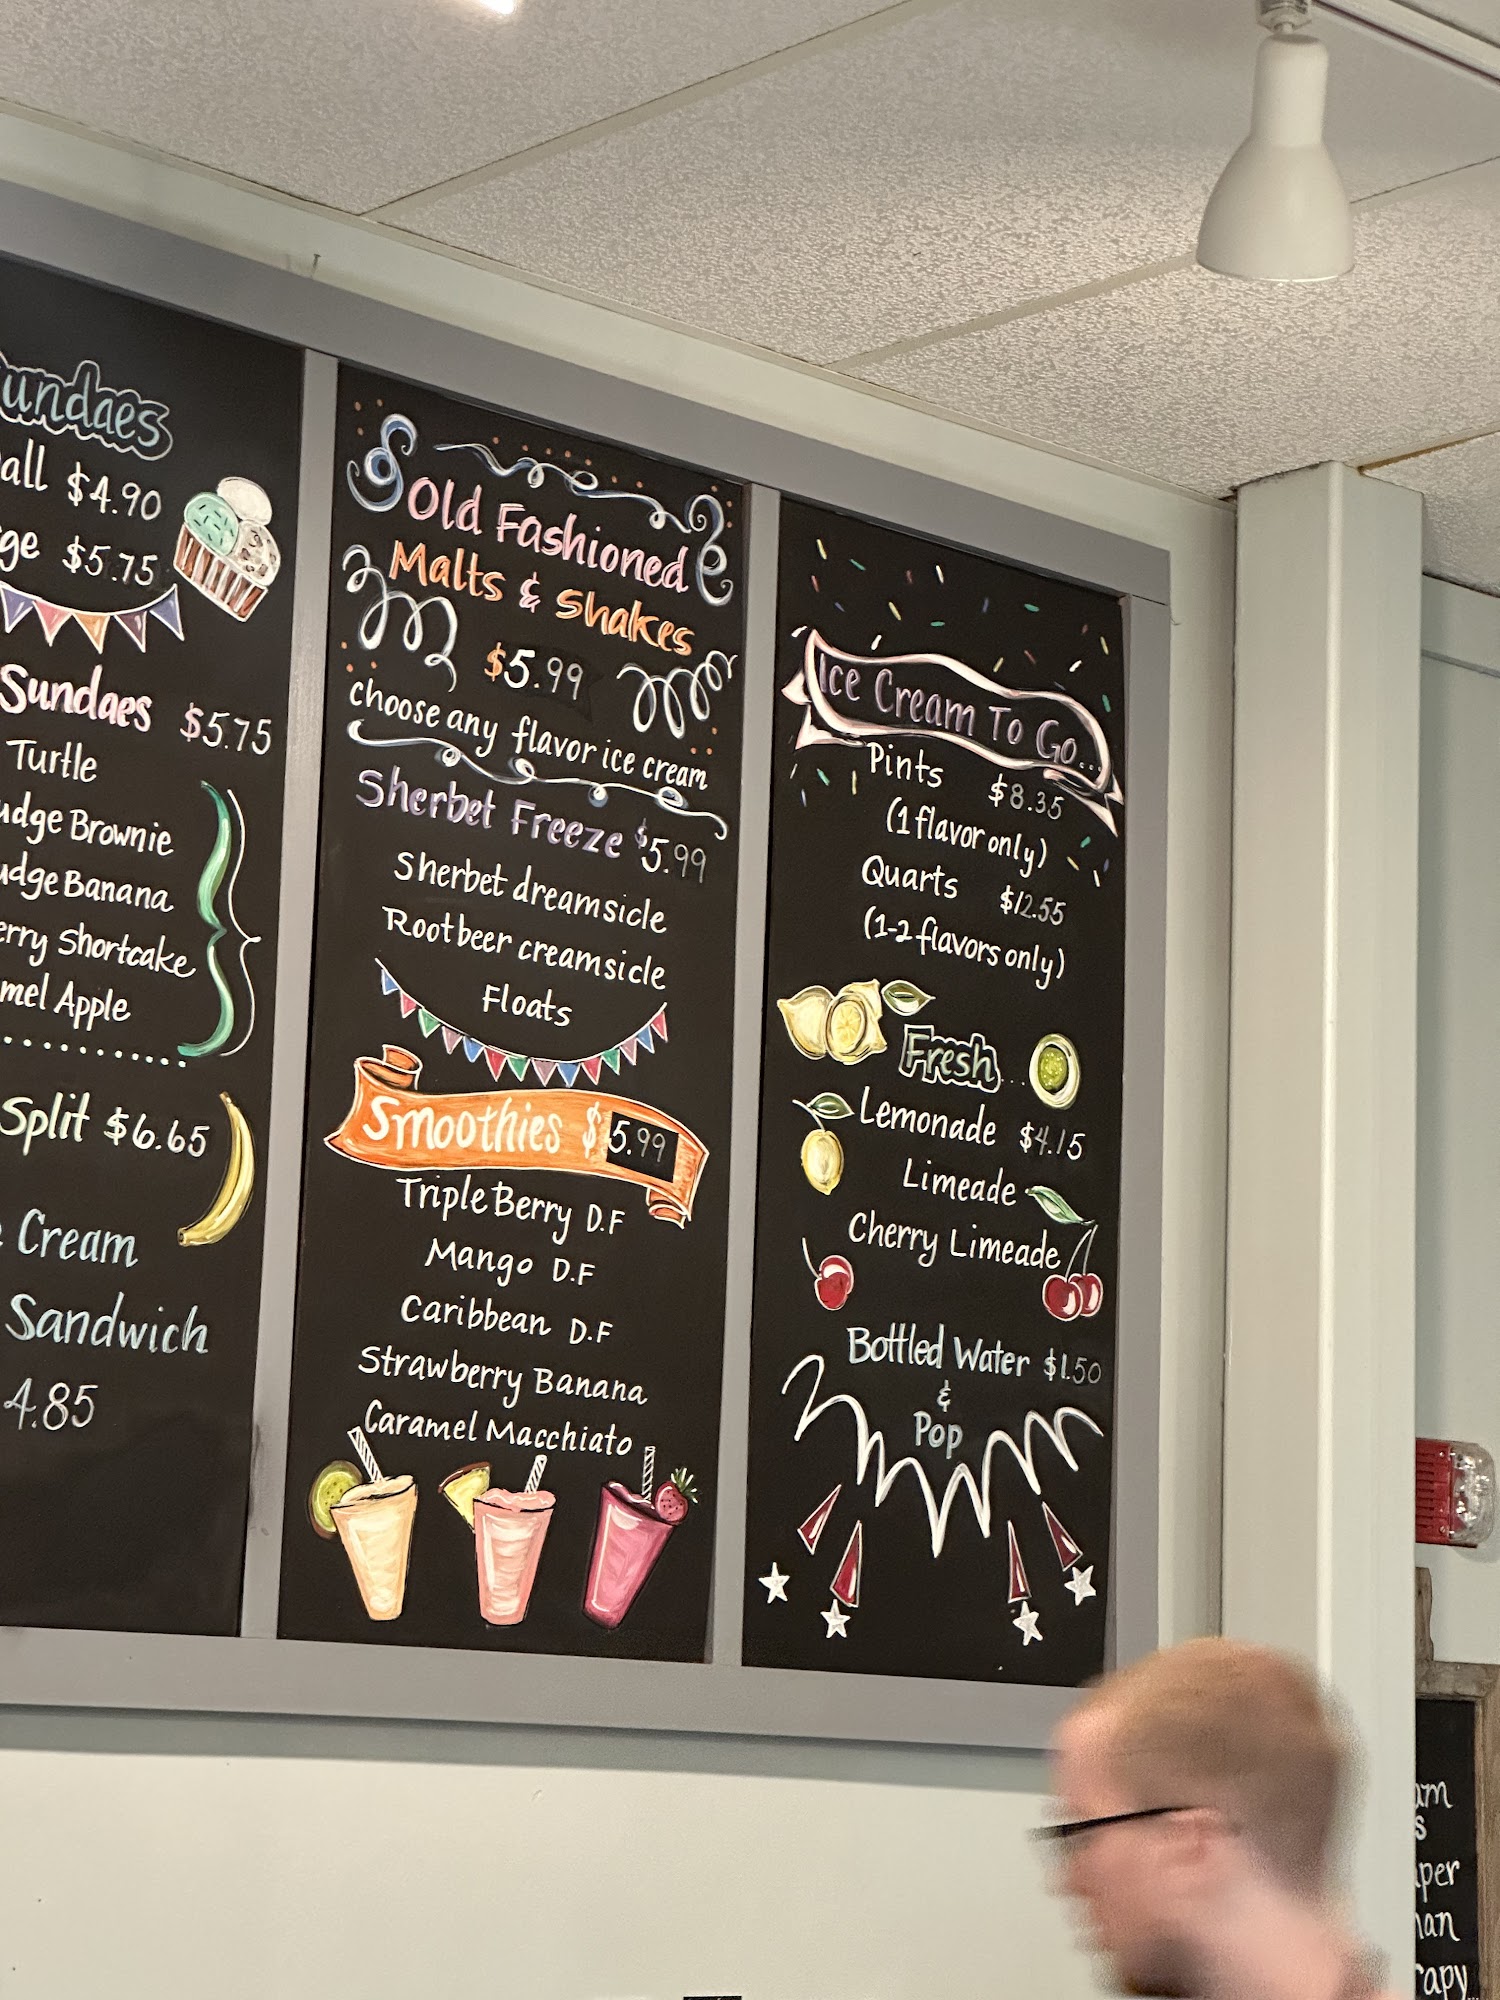 undaes
all $4.90
ge $5.75
Sundaes $5.75
Turtle
udge Brownie
udge Banana
erry Shortcake
mel Apple
Split $6.65
Cream
Sandwich
4.85
Old Fashioned
Malts & Shakes
$5.99
choose any flavor ice cream
Sherbet Freeze $5.99
Sherbet dreamsicle
Rootbeer creamsicle
Floats
Smoothies $5.99
Triple Berry D.F
Mango D.F
Caribbean D.F
Strawberry Banana
Caramel Macchiato
Ice Cream To Go...
Pints $8.35
(1 flavor only)
Quarts $12.55
(1-2 flavors only)
Fresh...
Lemonade $4.15
Limeade
Cherry Limeade
Bottled Water $1.50
&
Pop
am
s
per
han
rapy...